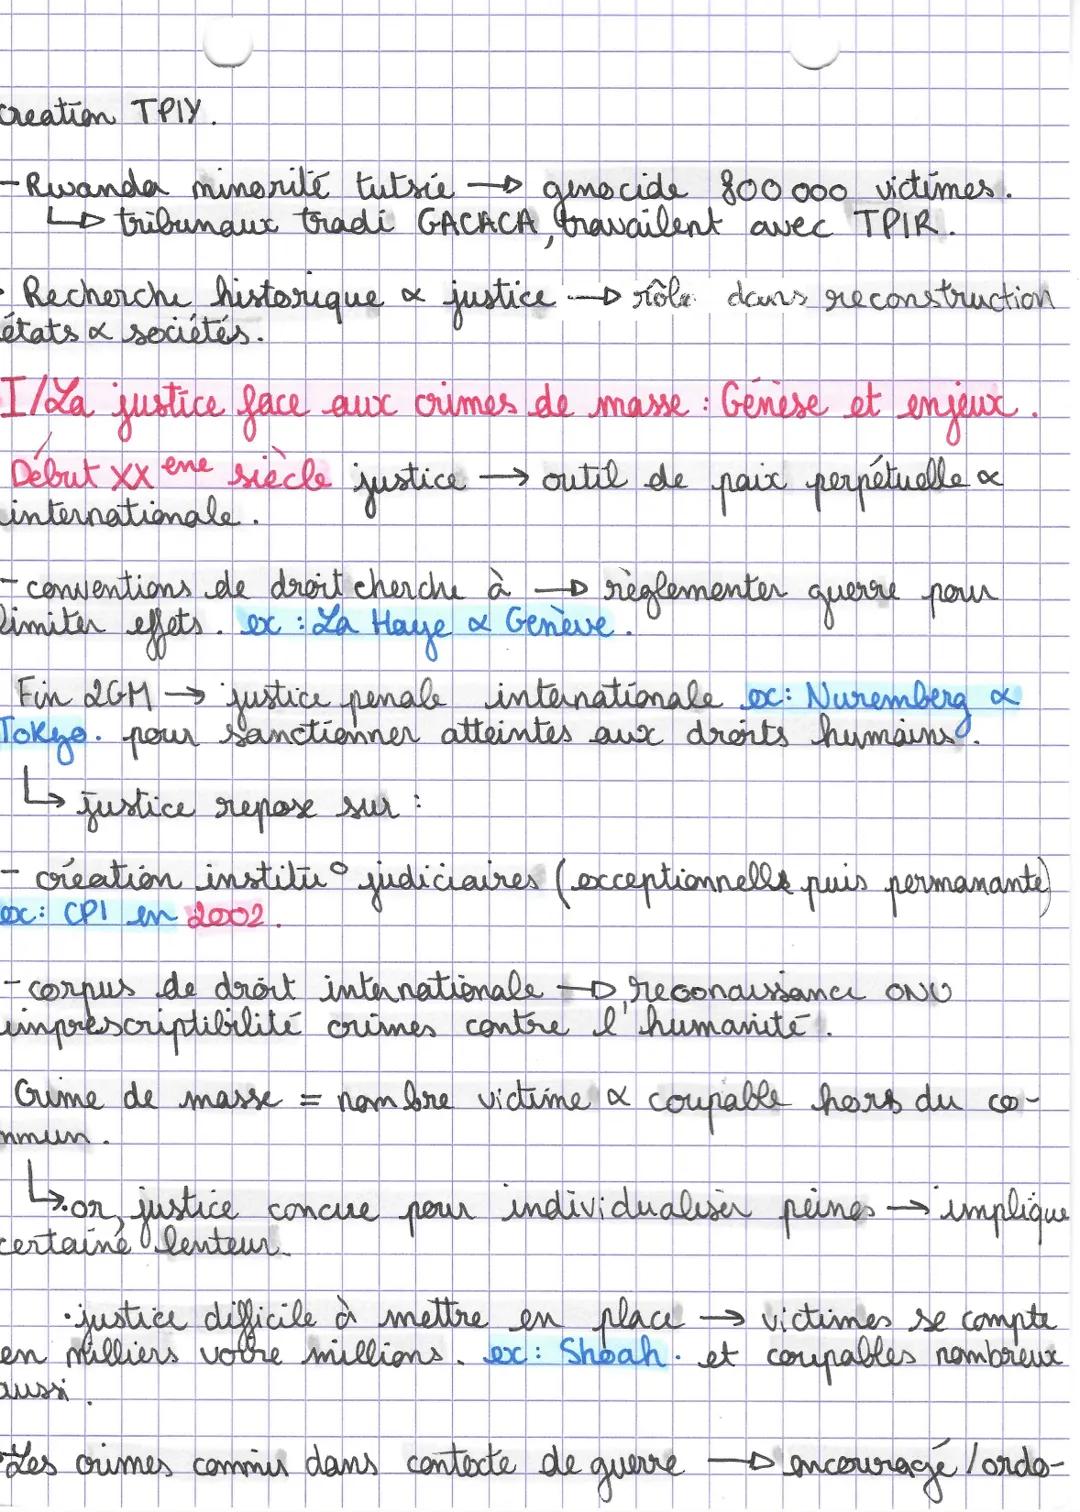 création TPIY.
- Rwanda minorité tutsie → génocide 800 000 victimes.
↳ tribunaux tradi GACACA, travailent avec TPIR.
· Recherche historique & justice → rôle dans reconstruction
états & sociétés.
I/La justice face aux crimes de masse : Génèse et enjeux.
Début XX ème siècle justice → outil de paix perpétuelle &
internationale.
- conventions de droit cherche à → règlementer guerre pour
limiter effets. ex : La Haye & Genève.
Fin 2GM → justice penale internationale ex: Nuremberg &
Tokyo. pour sanctionner atteintes aux droits humains.
↳ justice repose sur :
- création institu° judiciaires (exceptionnelle puis permanante)
ex: CPI en 2002.
- corpus de droit internationale → reconaissance ONU
imprescriptibilité crimes contre l'humanité.
Crime de masse = nombre victime & coupable hors du co-
mmun.
↳ or, justice concue pour individualiser peines → implique
certaine lenteur.
· justice difficile à mettre en place → victimes se compte
en milliers voire millions. ex: Shoah. et coupables nombreux
aussi.
· Les crimes commis dans contexte de guerre → encouragé/ordo-